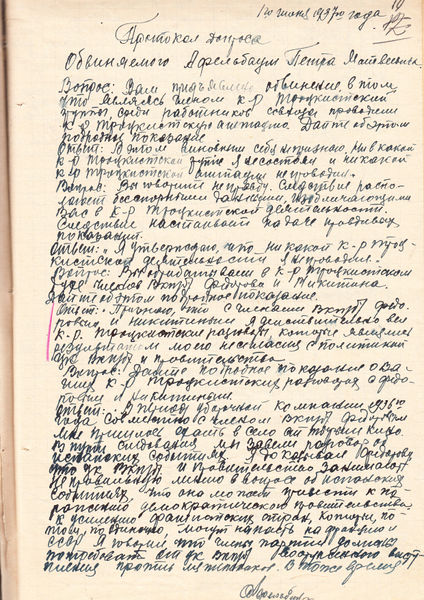 1го июня 1937го года
Протокол допроса
Обвиняемого Афельбаум Петра Матвеевича
Вопрос: Вам предъявлено обвинение, в том,
что являясь членом к-р троцкистской
группы, среди работников совхоза проводили
к-р троцкистскую агитацию. Дайте об этом
подробные показания.
Ответ: В этом виновным себя не признаю, ни в какой
к-р троцкистской группе я не состоял и никакой
к-р троцкистской агитации не проводил.
Вопрос: Вы говорите неправду. Следствие распо-
лагает бесспорными данными, изобличающими
Вас в к-р троцкистской деятельности.
Следствие настаивает на даче правдивых
показаний.
Ответ: Я утверждаю, что никакой к-р троц-
кистской деятельности я не проводил.
Вопрос: Вы обрабатывали в к-р троцкистском
духе членов ВКП/б Федорова и Никитина.
Дайте об этом подробное показание.
Ответ: Признаю, что с членами ВКП/б Федо-
ровым и Никитиным я действительно вел
к-р троцкистские разговоры, которые явились
результатом моего несогласия с политикой
ЦК ВКП/б и правительства.
Вопрос: Дайте подробное показание о Ва-
ших к-р троцкистских разговорах с Федо-
ровым и Никитиным.
Ответ: В период уборочной компании 1936го
года совместно с членом ВКП/б Федоровым
мне пришлось ехать в село
В пути следования мы завели разговор об
испанских событиях. Я доказывал Федорову
что ЦК ВКП/б и Правительство занимают
неправильную линию в вопросе об испанских
событиях, что она может привести к по-
ражению демократического правительства
к усилению фашистских стран, которые, по-
том, повидимому, могут напасть на Францию и
СССР. Я говорил что члены партии должны
потребовать от ЦК ВКП/б вооруженного выст-
упления против мятежников. В то же время